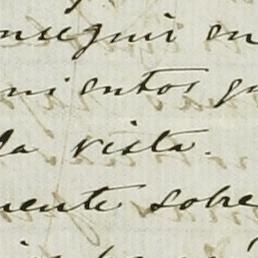 nseguir en
mientos qu
la vista.
mente sobre